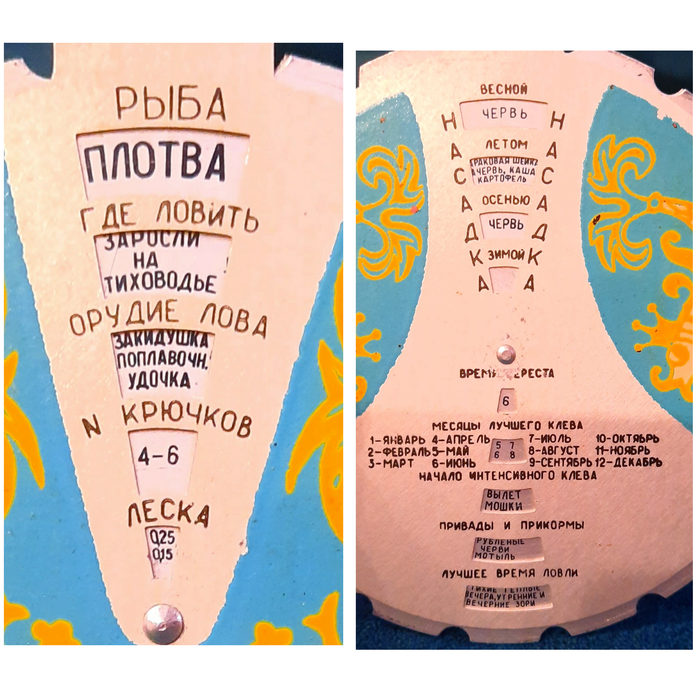 РЫБА
ПЛОТВА
ГДЕ ЛОВИТЬ
ЗАРОСЛИ
НА
ТИХОВОДЬЕ
ОРУДИЕ ЛОВА
ЗАКИДУШКА
ПОПЛАВОЧН.
УДОЧКА
N КРЮЧКОВ
4-6
ЛЕСКА
0,25
0,15
НАСАДКА
НАСАДКА
ВЕСНОЙ
ЧЕРВЬ
ЛЕТОМ
РАКОВАЯ ШЕЙКА
ЧЕРВЬ, КАША
КАРТОФЕЛЬ
ОСЕНЬЮ
ЧЕРВЬ
ЗИМОЙ
ВРЕМЯ НЕРЕСТА
6
МЕСЯЦЫ ЛУЧШЕГО КЛЕВА
1-ЯНВАРЬ 4-АПРЕЛЬ 5 7 7-ИЮЛЬ 10-ОКТЯБРЬ
2-ФЕВРАЛЬ 5-МАЙ 6 8 8-АВГУСТ 11-НОЯБРЬ
3-МАРТ 6-ИЮНЬ 9-СЕНТЯБРЬ 12-ДЕКАБРЬ
НАЧАЛО ИНТЕНСИВНОГО КЛЕВА
ВЫЛЕТ
МОШКИ
ПРИВАДЫ И ПРИКОРМЫ
РУБЛЕНЫЕ
ЧЕРВИ
МОТЫЛЬ
ЛУЧШЕЕ ВРЕМЯ ЛОВЛИ
ТИХИЕ ТЕПЛЫЕ
ВЕЧЕРА, УТРЕННИЕ И
ВЕЧЕРНИЕ ЗОРИ